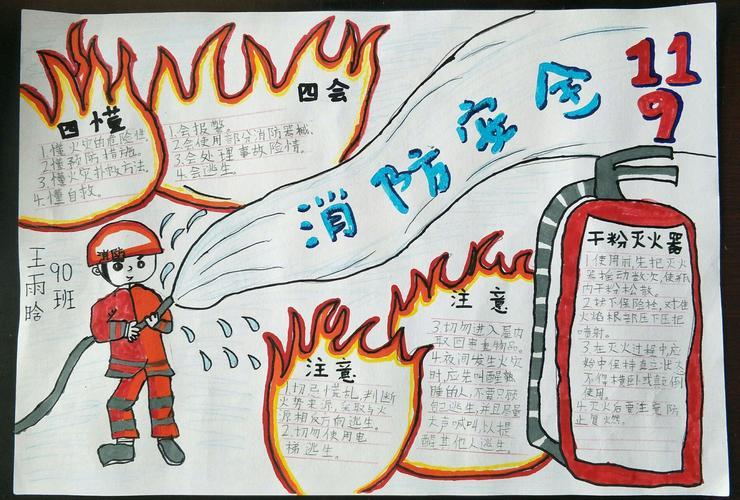 消防安全
119
四懂
1.懂火灾的危险性.
2.懂预防措施.
3.懂火灾扑救方法.
4.懂自救.
四会
1.会报警
2.会使用部分消防器械.
3.会处理事故险情.
4.会逃生.
消防
王雨晗
90班
注意
1.切忌慌乱,判断
火势来源,采取与火
源相反方向逃生.
2.切勿使用电
梯逃生.
注意
3.切勿进入屋内
取回贵重物品.
4.夜间发生火灾
时,应先叫醒熟
睡的人,不要只顾
自己逃生,并且尽量
大声喊叫,以提
醒其他人逃生.
干粉灭火器
1.使用前,先把灭火
器摇动数次,使瓶
内干粉松散.
2.拔下保险栓,对准
火焰根部压下压把
喷射.
3.在灭火过程中,应
始中保持直立状态
不得横卧或颠倒
使用.
4.灭火后要注意防
止复燃.